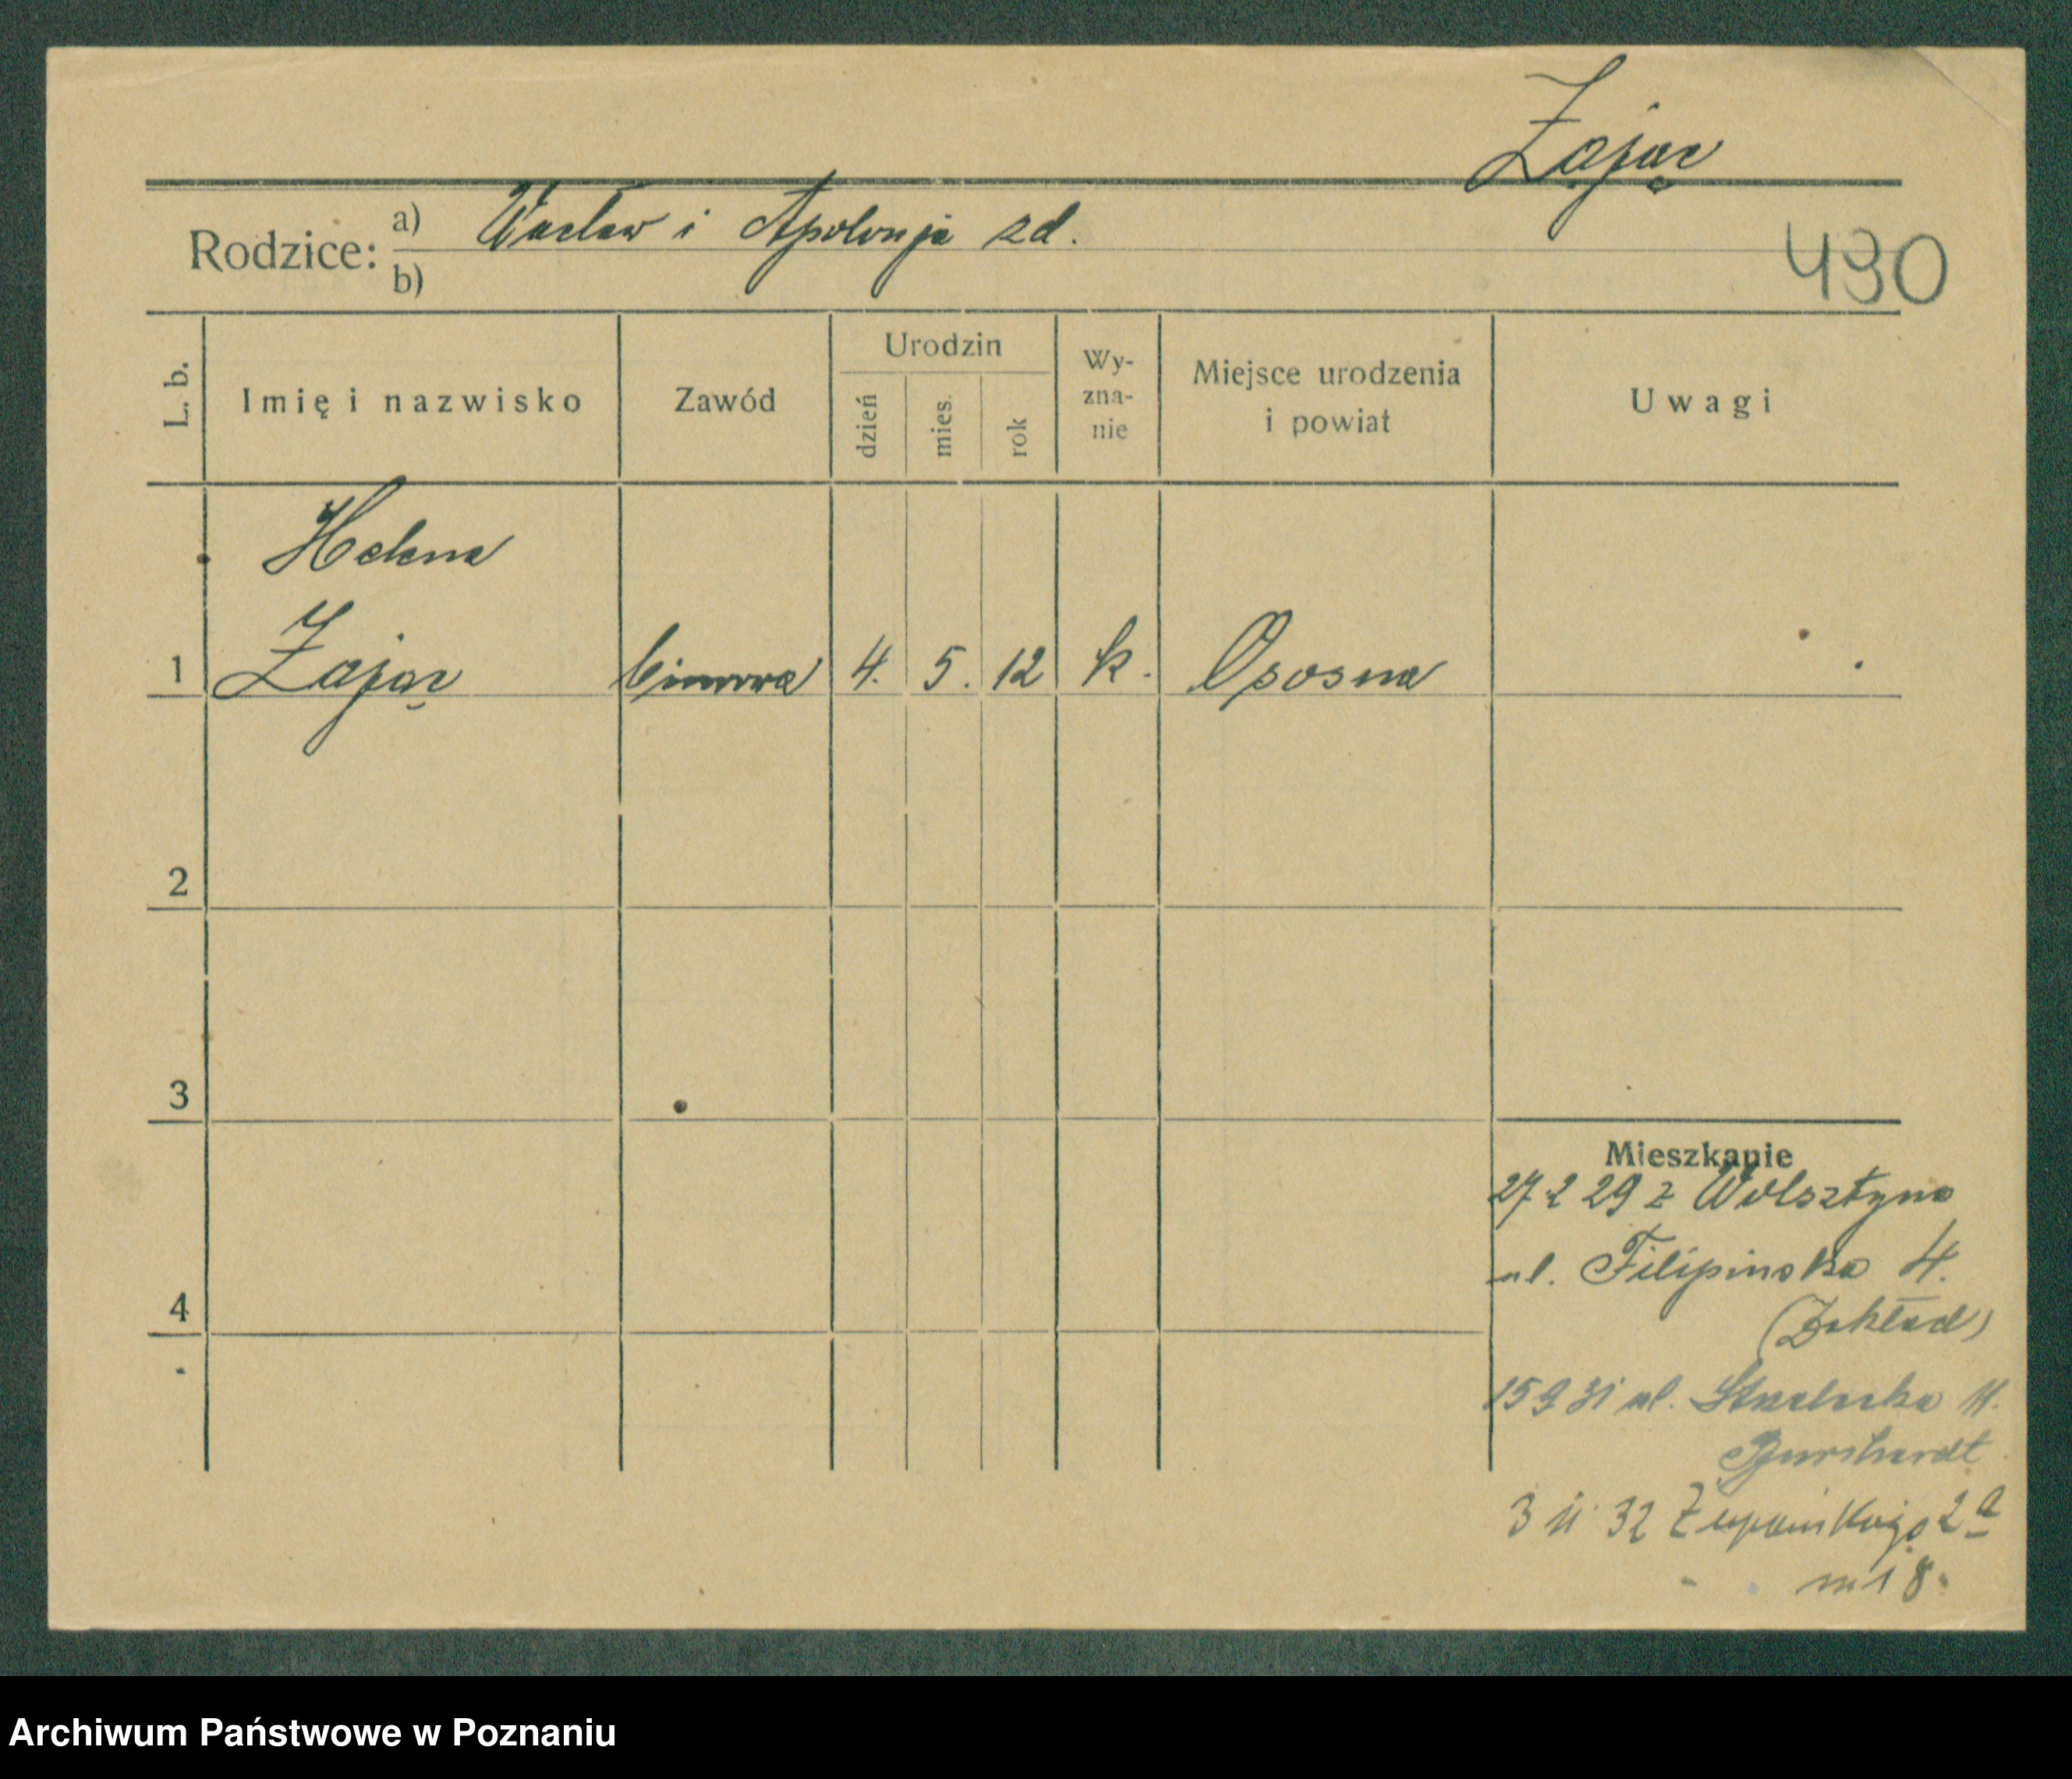 Zając
Rodzice: a) Wacław i Apolonja zd.
b)
430
L. b.
Imię i nazwisko
Zawód
Urodzin
dzień
mies.
rok
Wy-
zna-
nie
Miejsce urodzenia
i powiat
Uwagi
Helena
1 Zając 4. 5. 12 k. Ososna
2
3
4
Mieszkanie
27 2 29 z Wolsztyna
ul. Filipińska 4.
(Zakład)
15 9 31 ul. Strzelecka 11.
3 11 32 Żupańskiego 2a
m 18.
Archiwum Państwowe w Poznaniu